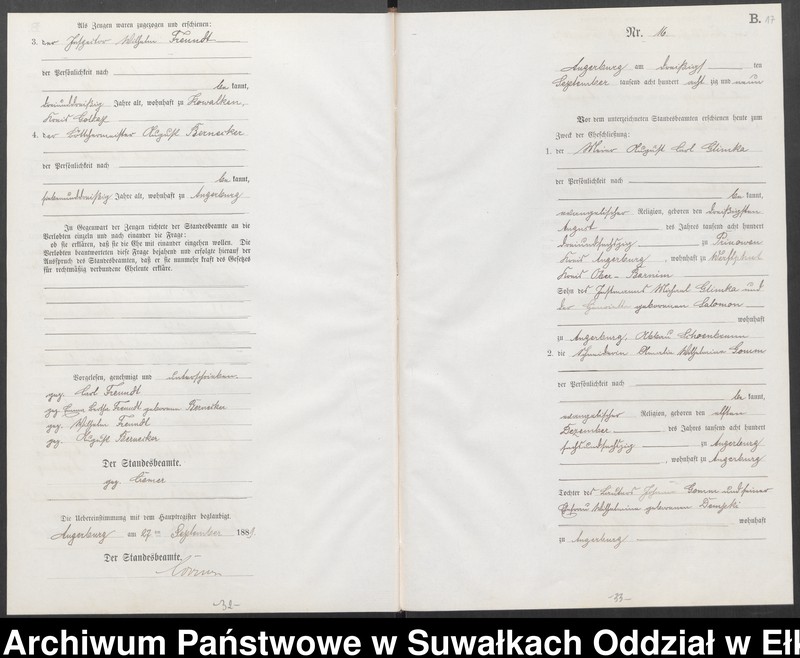 Als Zeugen waren zugezogen und erschienen:
3. der Wilhelm Freundt
der Persönlichkeit nach
be kannt,
dreiunddreißig Jahre alt, wohnhaft zu Kowalken,
Kreis Goldap
4. der Böttchermeister August Bernecker
der Persönlichkeit nach
be kannt,
siebenunddreißig Jahre alt, wohnhaft zu Angerburg
In Gegenwart der Zeugen richtete der Standesbeamte an die
Verlobten einzeln und nach einander die Frage:
ob sie erklären, daß sie die Ehe mit einander eingehen wollen. Die
Verlobten beantworteten diese Frage bejahend und erfolgte hierauf der
Ausspruch des Standesbeamten, daß er sie nunmehr kraft des Gesetzes
für rechtmäßig verbundene Eheleute erkläre.
Vorgelesen, genehmigt und unterschrieben
gez. Carl Freundt
gez. Freundt geborene Bernecker
gez. Wilhelm Freundt
gez. August Bernecker
Der Standesbeamte.
gez.
Die Uebereinstimmung mit dem Hauptregister beglaubigt
Angerburg am 27ten September 1889
Der Standesbeamte.
-32-
B. 17
Nr. 16
Angerburg am dreißigsten
September tausend acht hundert acht zig und neun
Vor dem unterzeichneten Standesbeamten erschienen heute zum
Zweck der Eheschließung:
1. der August Carl Glinka
der Persönlichkeit nach
be kannt,
evangelischer Religion, geboren den dreißigsten
August des Jahres tausend acht hundert
dreiundsechszig zu Prinowen
Kreis Angerburg, wohnhaft zu
Kreis Ober-Barnim
Sohn des Michael Glinka und
der geborenen Salomon
wohnhaft
zu Angerburg, Abbau
2. die Schneiderin Amalie Wilhelmine Gomm
der Persönlichkeit nach
be kannt,
evangelischer Religion, geboren den elften
Dezember des Jahres tausend acht hundert
sechsundsechszig zu Angerburg
, wohnhaft zu Angerburg
Tochter des Gomm und seiner
Ehefrau Wilhelmine geborenen
wohnhaft
zu Angerburg
-33-
Archiwum Państwowe w Suwałkach Oddział w Eł